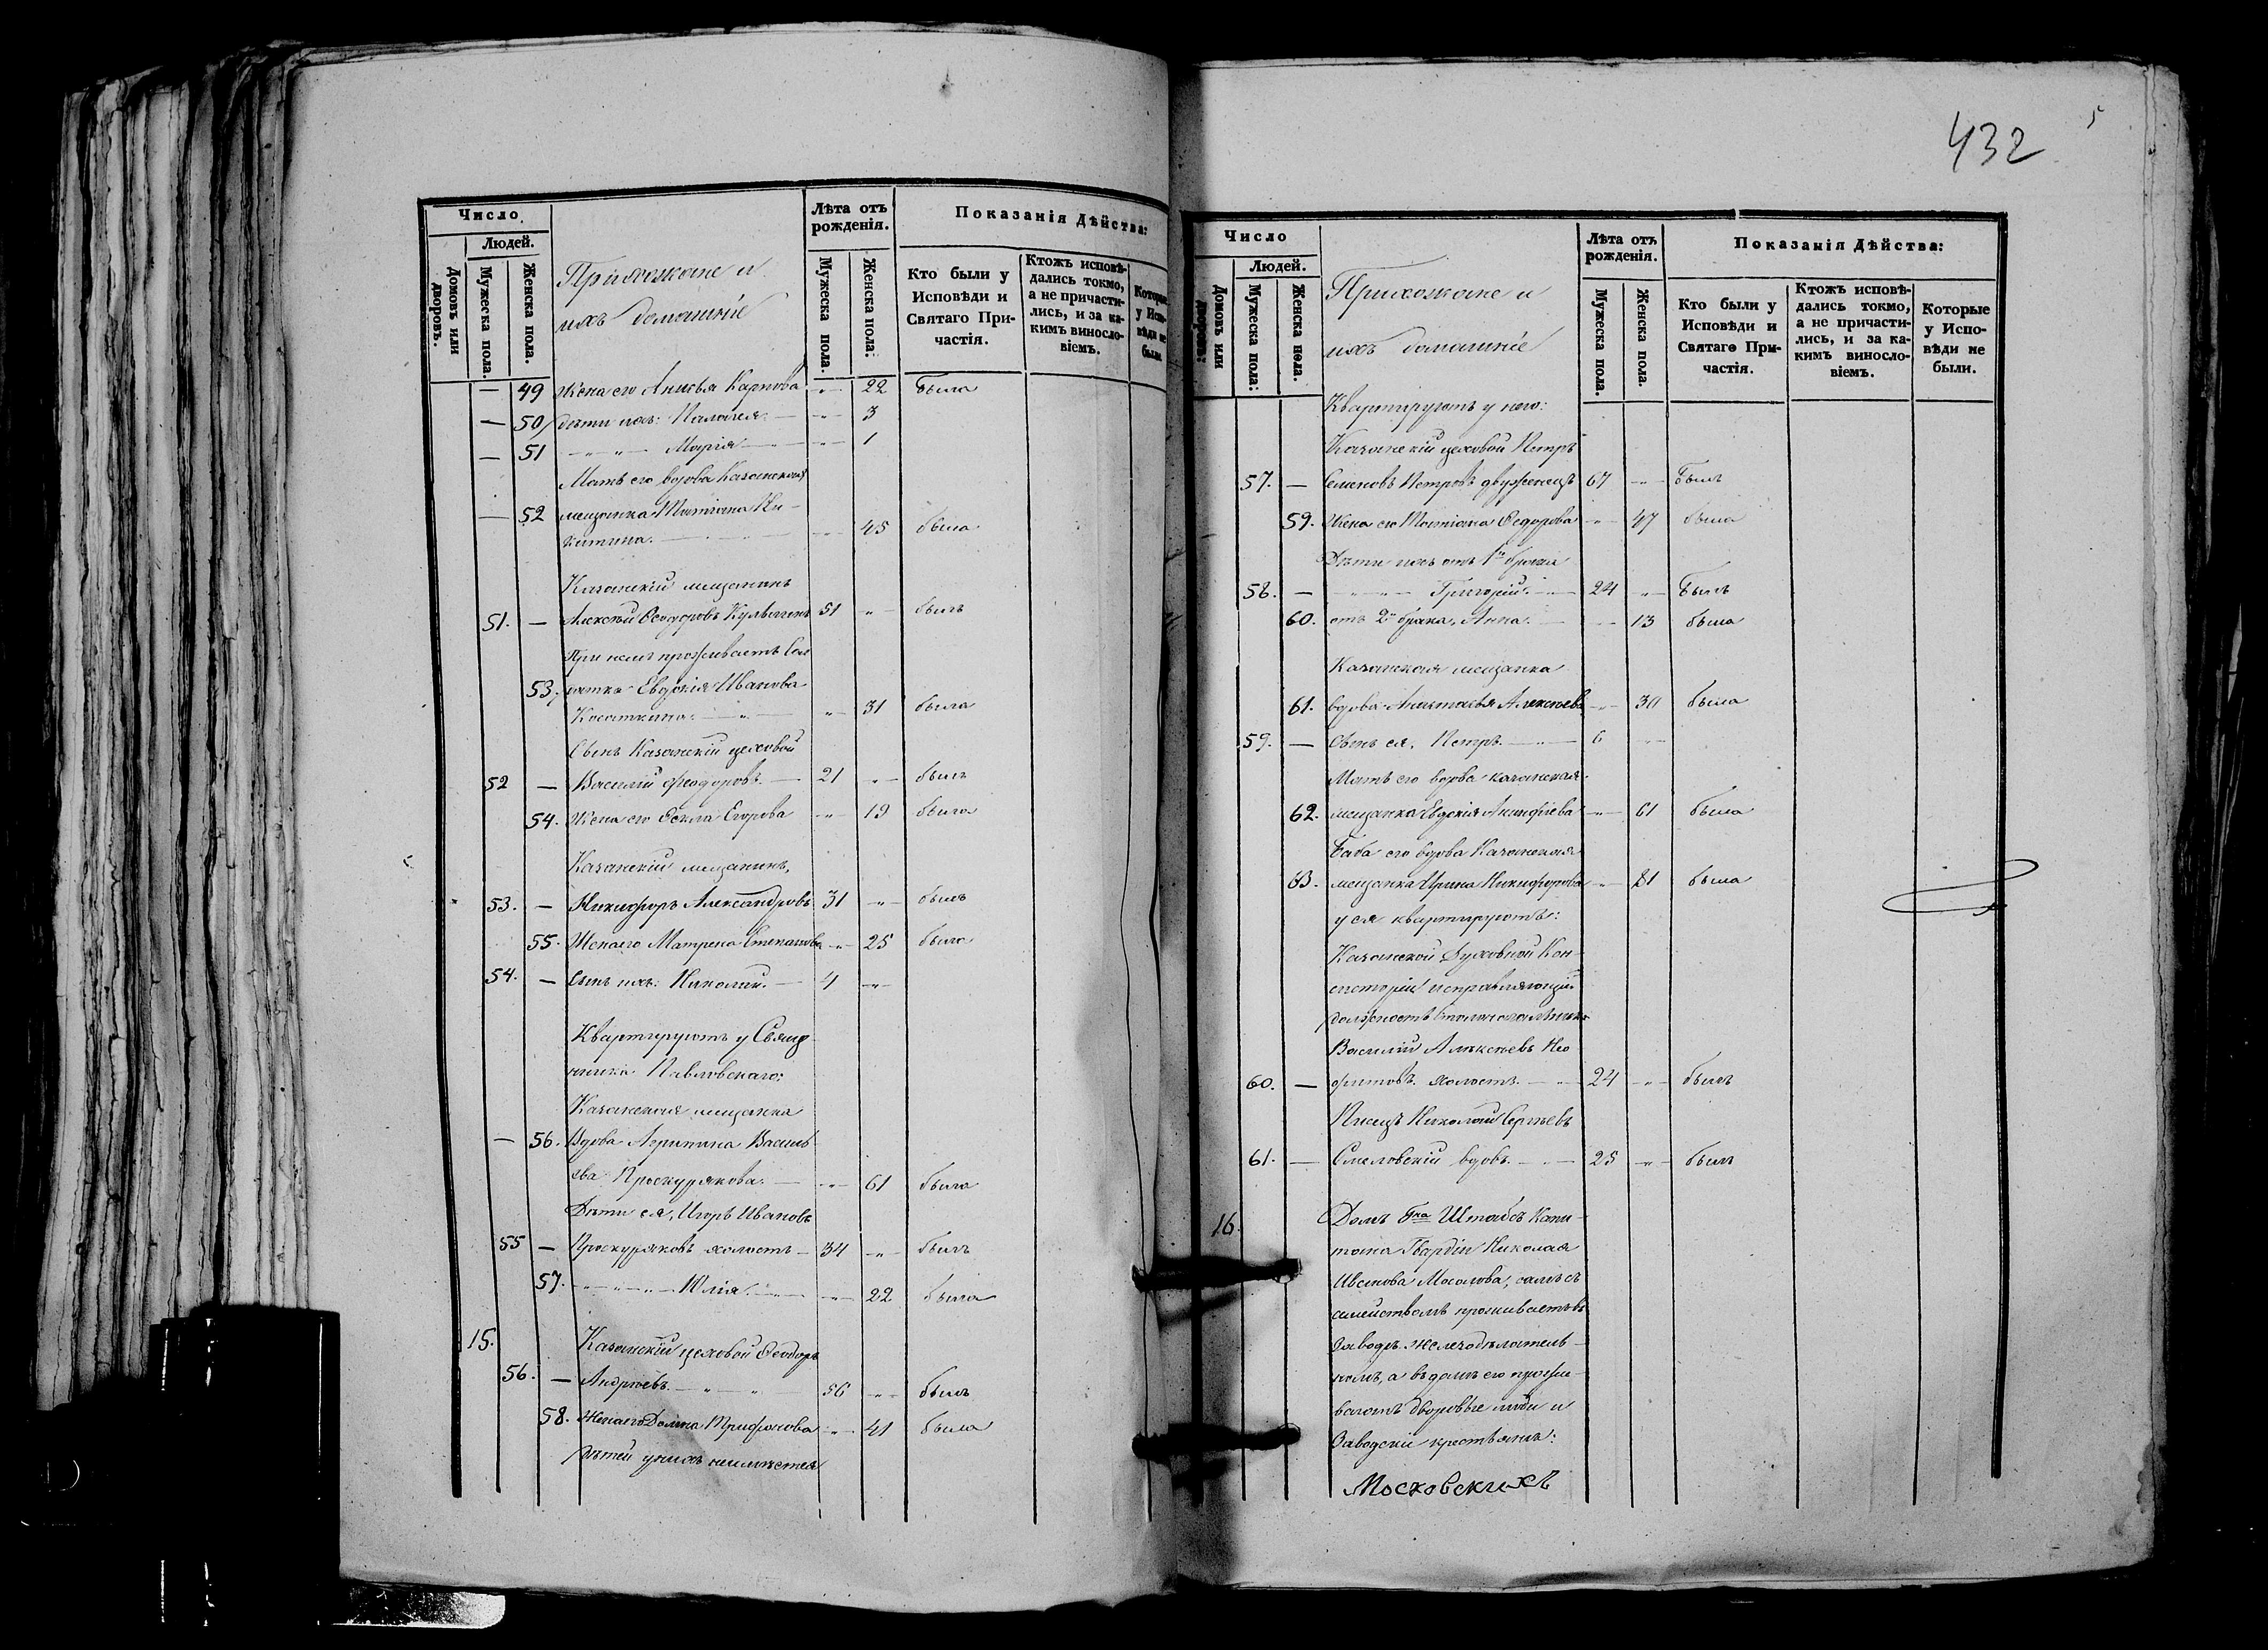 Число
Людей.
Домовъ или дворовъ.
Мужеска пола.
Женска пола.
Прихожане и
ихъ домашніе
Лѣта отъ рожденія.
Мужеска пола.
Женска пола.
Показанія Дѣйства:
Кто были у Исповѣди и Святаго Причастія.
Ктожъ исповѣдались токмо, а не причастились, и за какимъ винословіемъ.
Которые у Исповѣди не были.
— 49 Жена его Анисья Карпова — 22 Была
— 50 дѣти ихъ: Палагея — 3
— 51 Марія — 1
Мать его вдова Казанская
— 52 мещанка Татіана Ни-
китина. — 45 была
Казанскій мещанинъ
51. — Алексѣй Ѳеодоровъ 51 — былъ
При немъ проживаетъ Сол
53. датка Евдокія Иванова
Косаткина — 31 была
Сынъ Казанскій цеховой
52 — Василій Феодоровъ — 21 — былъ
54. Жена его Ѳекла Егорова — 19 была
Казанскій мещанинъ,
53. — Никифоръ Александровъ 31 — былъ
55. Жена его Матрена Степанова — 25 была
54. — Сынъ ихъ: Николай. — 4 —
Квартируютъ у Свящ
нника Павловскаго:
Казанская мещанка
— 56. Вдова Агрипина Василь
ева Проскурякова. — 61 была
Дѣти ея, Игорь Ивановъ
55 — Проскуряковъ холостъ — 34 — былъ
57. — Юлія — 22 была
15. Казанскій цеховой Ѳеодоръ
56. — Андреевъ. — 56 — былъ
58. Жена его Домна Трифонова — 41 была
дѣтей у нихъ неимѣется
432
5
Число
Людей.
Домовъ или дворовъ:
Мужеска пола:
Женска пола.
Прихожане и
ихъ домашніе
Лѣта отъ рожденія.
Мужеска пола.
Женска пола.
Показанія Дѣйства:
Кто были у Исповѣди и Святаго Причастія.
Ктожъ исповѣдались токмо, а не причастились, и за какимъ винословіемъ.
Которые у Исповѣди не были.
Квартируютъ у него:
Казанскій цеховой Петръ
57. — Семеновъ Петровъ двуженецъ 67 — Былъ
59. Жена его Татіана Ѳедорова — 47 была
Дѣти ихъ отъ 1го брака
58. — Григорій. — 24 — Былъ
60. отъ 2го брака, Анна. — 13 была
Казанская мещанка
61. вдова Анастасья Алексѣева — 30 была
59. — Сынъ ея, Петръ. — 6 —
Мать его вдова казанская
62. мещанка Евдокія Акинфіева — 61 была
Баба его вдова Казанская
63. мещанка Ирина Никифорова — 81 была
у ея квартируютъ:
Казанской Духовной Кон
систоріи исправляющій
должность Столоначальника
Василій Алексѣевъ Нео
60. — фитовъ. холостъ. — 24 — былъ
Писецъ Николай Сергѣевъ
61. — Смеловскій вдовъ. — 25 — былъ
16. Домъ Гна Штабсъ Капи-
тана Гвардіи Николая
Иванова Мосолова, самъ съ
семействомъ проживаетъ въ
Заводѣ Желѣзодѣлатель-
номъ, а въ домѣ его прожи
ваютъ дворовые люди и
Заводскіе крестьяне:
Московскихъ